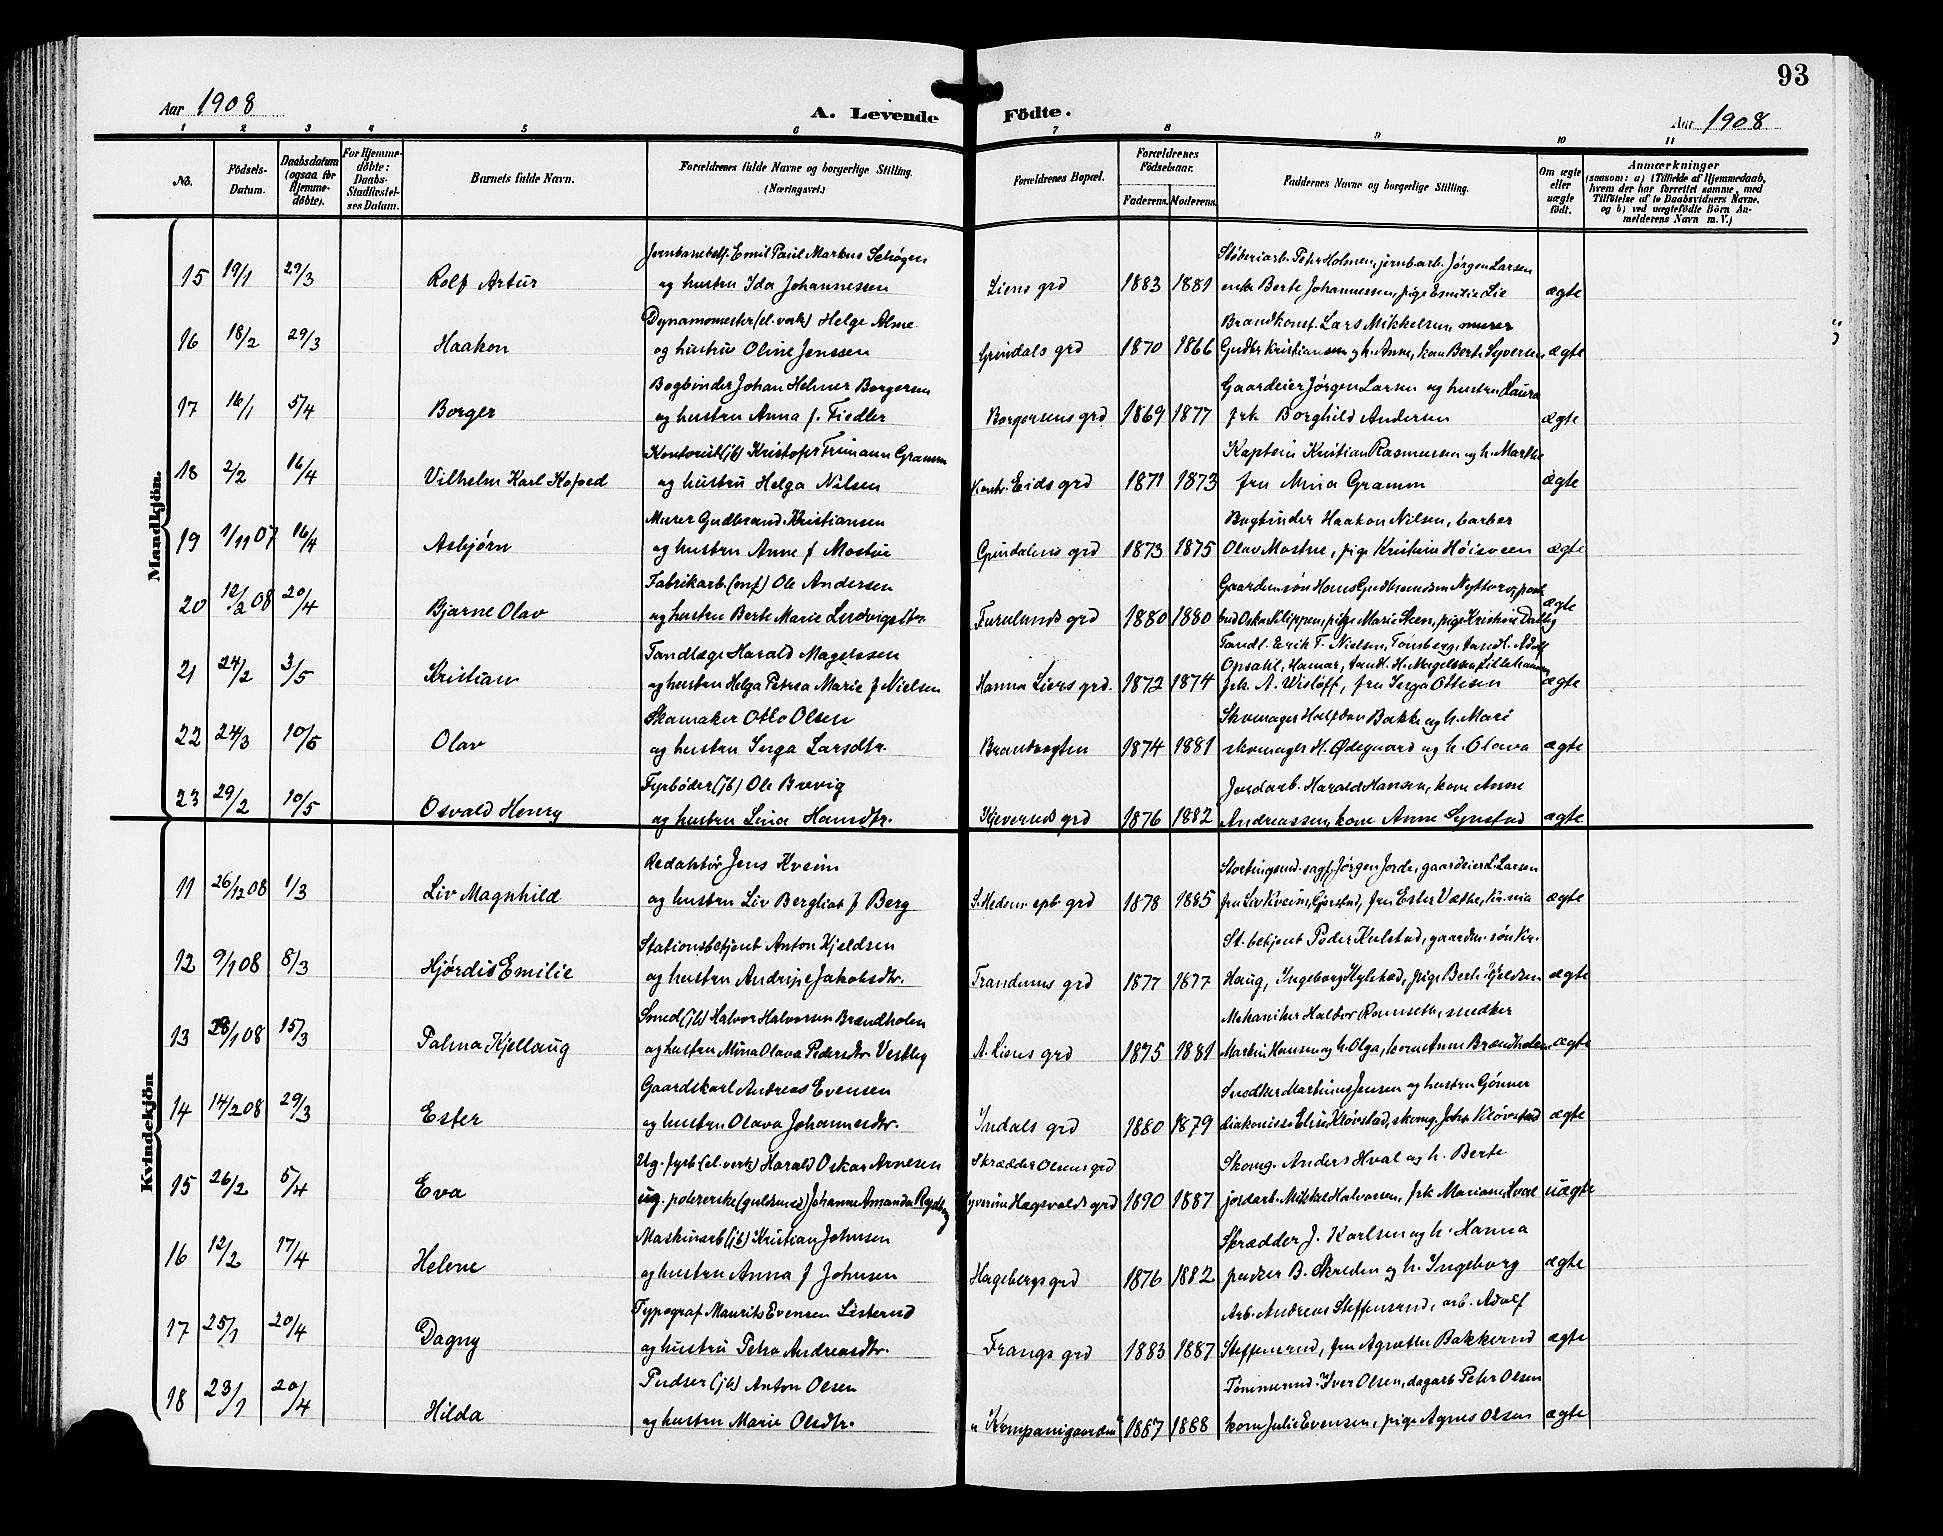 93
Aar 1908
A. Levende Födte.
Aar 1908
1 2 3 4 5 6 7 8 9 10 11
No.
Födsels-Datum.
Daabsdatum (ogsaa for Hjemme-döbte).
For Hjemme-döbte: Daabs-Stadfæstelses Datum.
Barnets fulde Navn.
Forældrenes fulde Navne og borgerlige Stilling. (Næringsvei.)
Forældrenes Bopæl.
Forældrenes Födselsaar.
Faderens. Moderens.
Faddernes Navne og borgerlige Stilling.
Om ægte eller uægte födt.
Anmærkninger
(saasom: a) i Tilfælde af Hjemmedaab, hvem der har forrettet samme, med Tilföielse af to Daabsvidners Navne. og b) ved uægtefödte Börn Anmelderens Navn m. V.)
Mandkjön.
Jernbanebetj. Emil Paul Markus Schøgen Støberiarb. Petr Holmen, jernb.arb. Jørgen Larsen
15 19/1 29/3 Rolf Artur og hustru Ida Johannessen Liens grd 1883 1881 enke Berte Johannessen, pige Emilie Lie ægte
Dynamomester (el. verk) Helge Alme Brandkonst. Lars Mikkelsen, murer
16 18/2 29/3 Haakon og hustru Oline Jenssen Grindals grd 1870 1866 Gudbr Kristiansen og h. Anne, kone Berte Syversen ægte
Bogbinder Johan Helmer Borgersen Gaardeier Jørgen Larsen og hustru Laura
17 16/1 5/4 Borger og hustru Anna f. Fiedler Borgersens grd 1869 1877 frk Borghild Andersen ægte
Kontorist (jb) Kristofer Gramm Kaptein Kristian Rasmussen og h. Marthe
18 2/2 16/4 Vilhelm Karl Kofoed og hustru Helga Nilsen Eids grd 1871 1873 fru Mina Gramm ægte
Murer Gudbrand Kristiansen Bogbinder Haakon Nilsen, barber
19 1/11 07 16/4 Asbjørn og hustru Anne f Mostue Grindalens grd 1873 1875 Olav Mostue, pige Kristine Høisveen ægte
Fabrikarb. Ole Andersen Gaardm.søn Hans Gudbrandsen
20 12/2 08 20/4 Bjarne Olav og hustru Berte Marie Ludvigsdtr. Furulunds grd 1880 1880 bud Oskar Klippen, pige Marie Steen, pige Kristine Dahlig ægte
Tandlæge Harald Magelssen Tandl. Erik T. Nielsen, Tønsberg, tandl. Adolf
Opsahl, Hamar, tandl. H. Magelssen, Lillehammer
21 24/2 3/5 Kristian og hustru Helga Petrea Marie f Nielsen Hanna Liens grd. 1872 1874 frk. A. Wisløff, fru Inga Ottesen ægte
Skomaker Otto Olsen Skomager Halfdan Bakke og h. Marie
22 24/3 10/5 Olav og hustru Inga Larsdtr. Brandvagten 1874 1881 skomager H. Ødegaard og h. Olava ægte
Fyrbøder (jb) Ole Brevig Jordarb. Harald Hansen, kone Anne
23 29/2 10/5 Osvald Henry og hustru Lina Hansdtr. Kjeveruds grd 1876 1882 Andreassen, kone Anne Synstad ægte
Kvindekjön
Redaktør Jens Kveim Stortingsmd. sagf. Jørgen Jorde, gaardeier L. Larsen
11 26/12 08 1/3 Liv Magnhild og hustru Liv Bergliot f Berg S. Hedem spb grd 1878 1885 fru Liv Kveim, Gjerstad, fru Ester Vætthe, Kr.nia ægte
Stationsbetjent Anton Kjeldsen St. betjent Peder Kulstad, gaardm. søn Kr.
12 9/1 08 8/3 Hjørdis Emilie og hustru Andrine Jakobsdtr. Trandums grd 1877 1877 Haug, Ingeborg Kylstad, pige Berte Kjeldsen ægte
Smed (jb) Halvor Halvorsen Brændholen Mekaniker Halvor Romseth, snedker
13 28/1 08 15/3 Palma Kjellaug og hustru Mina Olava Pedersdtr Vestby A. Liens grd 1875 1881 Martin Hansen og h. Olga, kone Anne Brændholen ægte
Gaardskarl Andreas Evensen Snedker Martinus Jensen og hustru Gønner
14 14/2 08 29/3 Ester og hustru Olava Johannesdtr. Indals grd 1880 1879 diakonisse Elise Kløvstad, skomg. Johs Kløvstad ægte
Ug. fyrb. (el. verk) Harald Oskar Arnesen Skrædder Olsens grd Skomg. Anders Hval og h. Berte
15 26/2 5/4 Eva ug. polererske (guldsmed) Johanne Amanda Hagsvolds grd 1890 1887 jordarb. Mikkel Halvorsen, frk Mariane Hval uægte
Maskinarb (jb) Kristian Johnsen Skrædder J. Karlsen og h. Hanna
16 12/2 17/4 Helene og hustru Anna f Johnsen Hagebergs grd 1876 1882 pudser B. Skreden og h. Ingeborg ægte
Typograf Maurits Evensen Listerud Arb. Andreas Steffensrud, arb. Adolf
17 25/1 20/4 Dagny og hustru Petra Andreasdtr. Frangs grd 1883 1887 Steffensrud, fru Agnethe Bakkerud ægte
Pudser (jb) Anton Olsen Tømmermd. Iver Olsen, dagarb Petr Olsen
18 23/1 20/4 Hilda og hustru Marie Olsdtr. "Kompanigaarden" 1887 1888 kone Julie Evensen, pige Agnes Olsen ægte